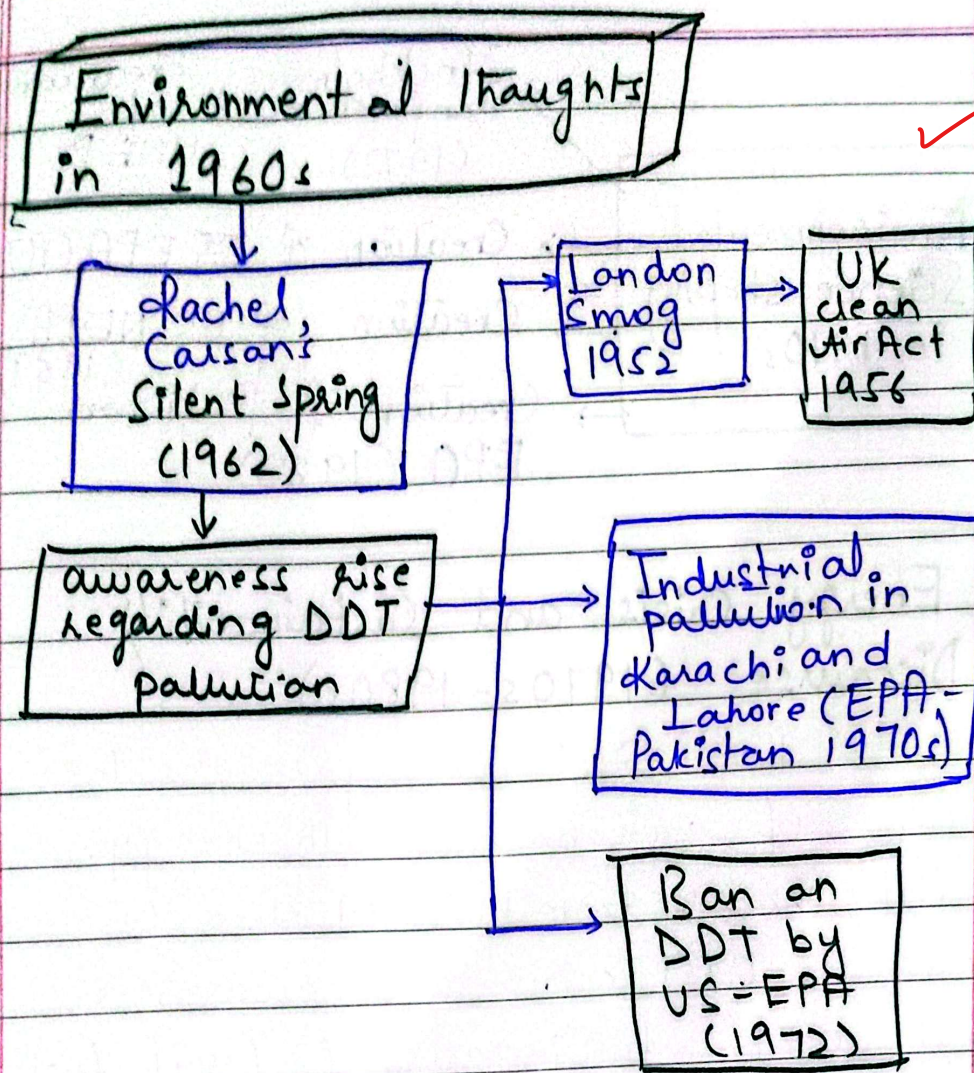 Environmental Thaughts
in 1960s
Rachel,
Carsan's
Silent Spring
(1962)
awareness rise
regarding DDT
pallutian
London
Smog
1952
UK
clean
Air Act
1956
Industrial
pallution in
Karachi and
Lahore (EPA-
Pakistan 1970s)
Ban an
DDT by
US-EPA
(1972)